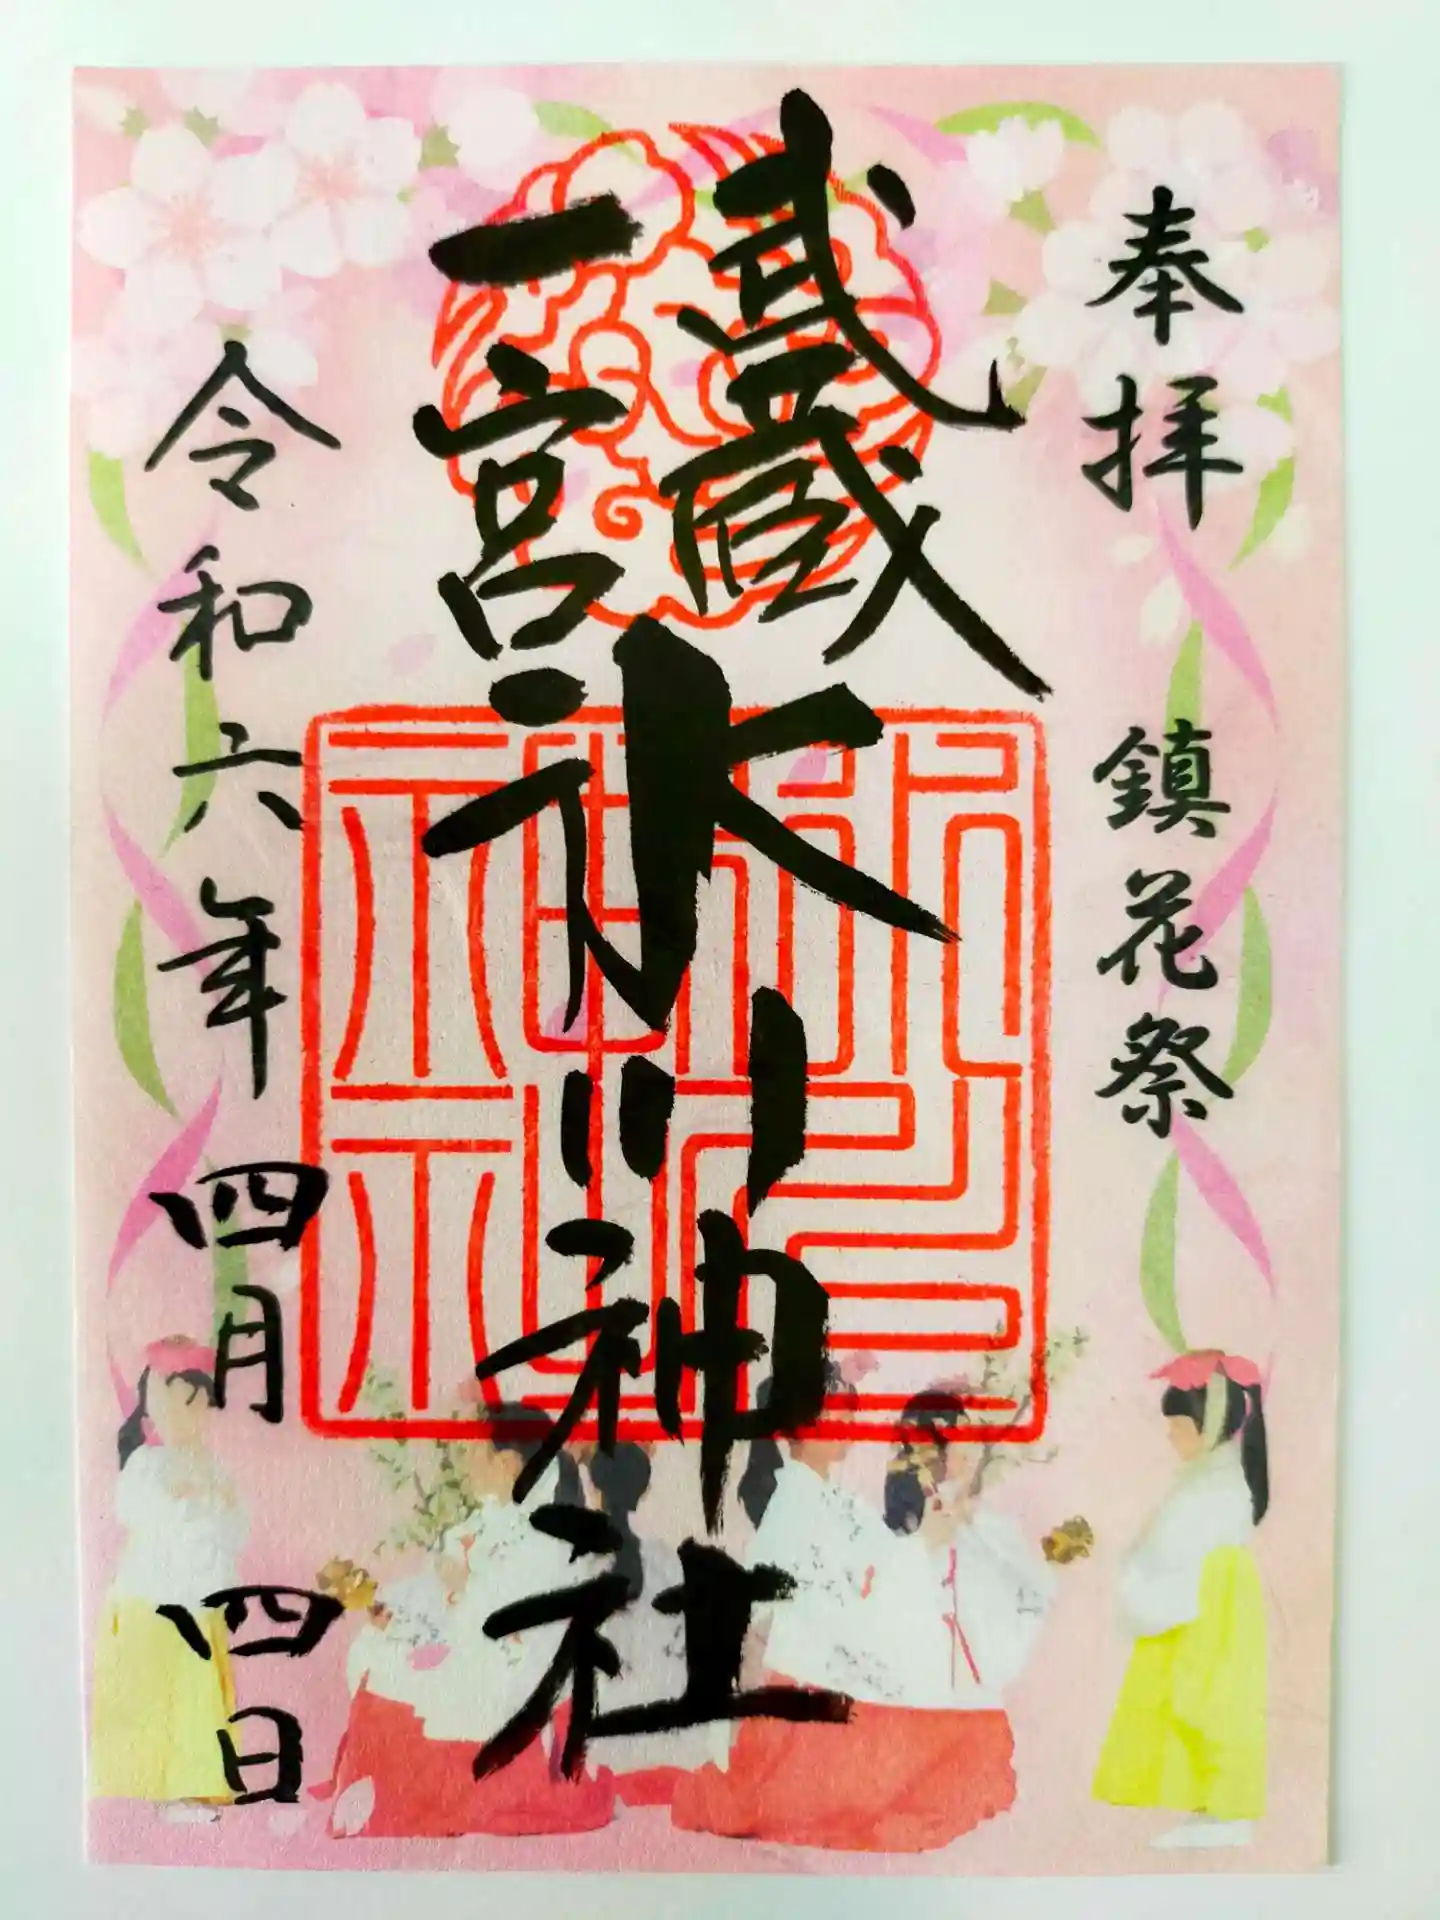 奉拝 鎮花祭
武蔵
一宮
氷川神社
令和六年 四月 四日